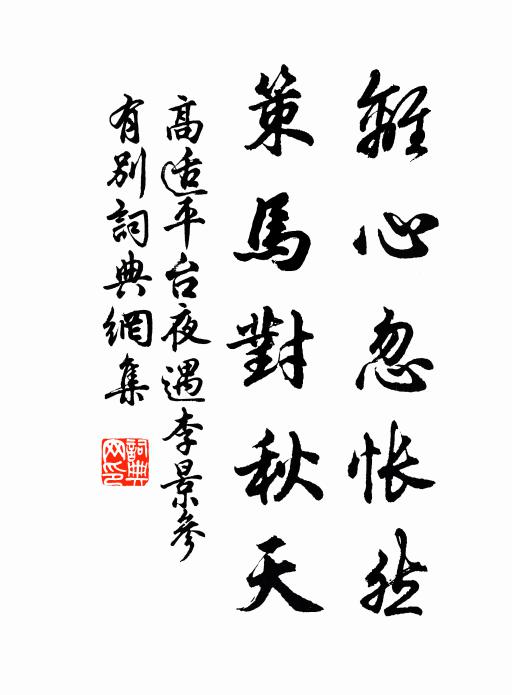 離心忽悵然
策馬對秋天
高适平台夜遇李景參
有別詞典網集
詞典网印